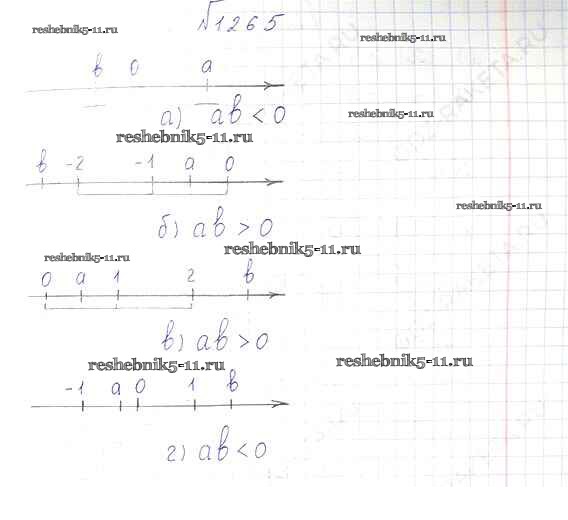 №1265
reshebnik5-11.ru
reshebnik5-11.ru
в 0 а
а) ав < 0
reshebnik5-11.ru
reshebnik5-11.ru
в -2 -1 а 0
reshebnik5-11.ru
б) ав > 0
reshebnik5-11.ru
reshebnik5-11.ru
0 а 1 2 в
в) ав > 0
reshebnik5-11.ru
reshebnik5-11.ru
-1 а 0 1 в
г) ав < 0